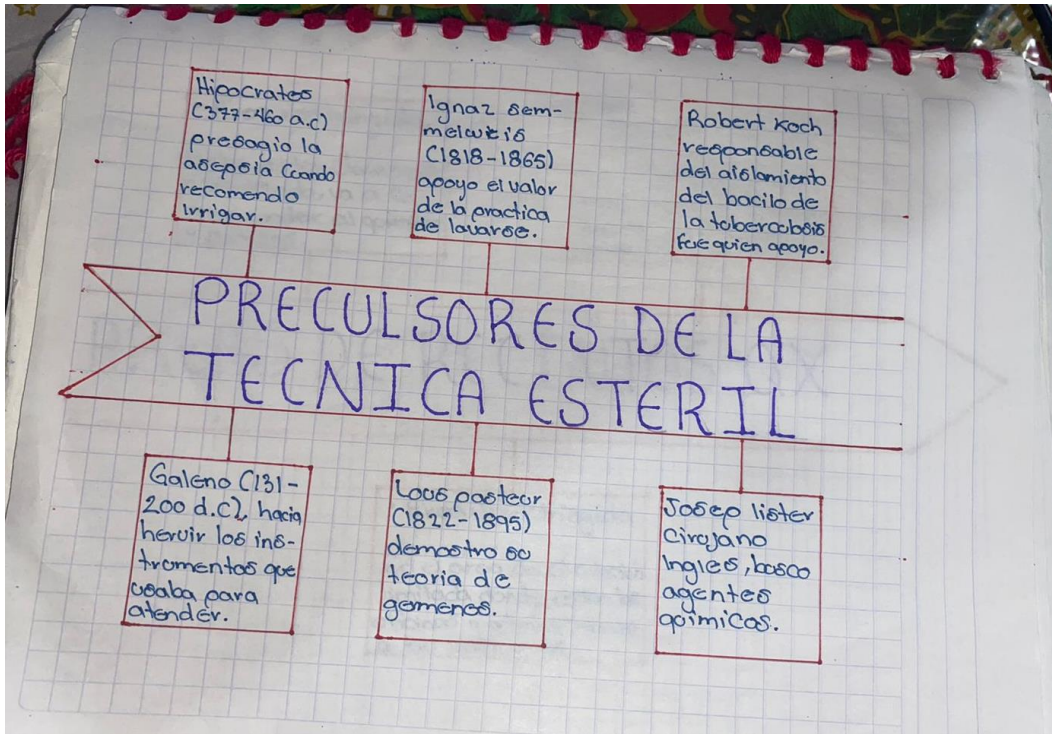 Hipocrates
(377-460 a.c)
presagio la
asepsia Cuando
recomendo
irrigar.
Ignaz sem-
melweis
(1818-1865)
apoyo el valor
de la practica
de lavarse.
Robert Koch
responsable
del aislamiento
del bacilo de
la tuberculosis
fue quien apoyo.
PRECULSORES DE LA
TECNICA ESTERIL
Galeno (131-
200 d.C), hacia
hervir los ins-
trumentos que
usaba para
atender.
Lous pasteur
(1822-1895)
demostro su
teoria de
gemenes.
Josep lister
Cirujano
Ingles, busco
agentes
quimicos.